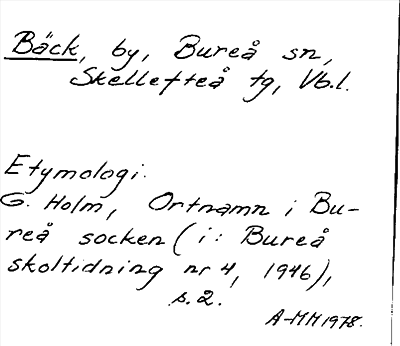 Bäck, by, Bureå sn,
Skellefteå tg, Vb.l.
Etymologi.
G. Holm, Ortnamn i Bu-
reå socken (i: Bureå
skoltidning nr 4, 1946),
s. 2.
A-MM 1978.